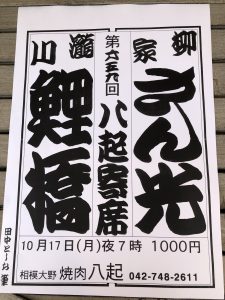 柳家
さん光
八起寄席
瀧川
鯉橋
10月17日(月)夜7時 1000円
相模大野 焼肉八起 042-748-2611